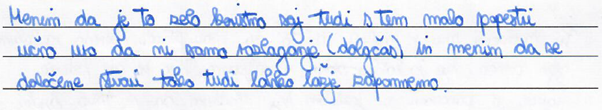 Menim da je to zelo koristno saj tudi s tem malo popestri
učno uro da ni samo razlaganje (dolgčas) in menim da se
določene stvari tako tudi lahko lažje zapomnemo.